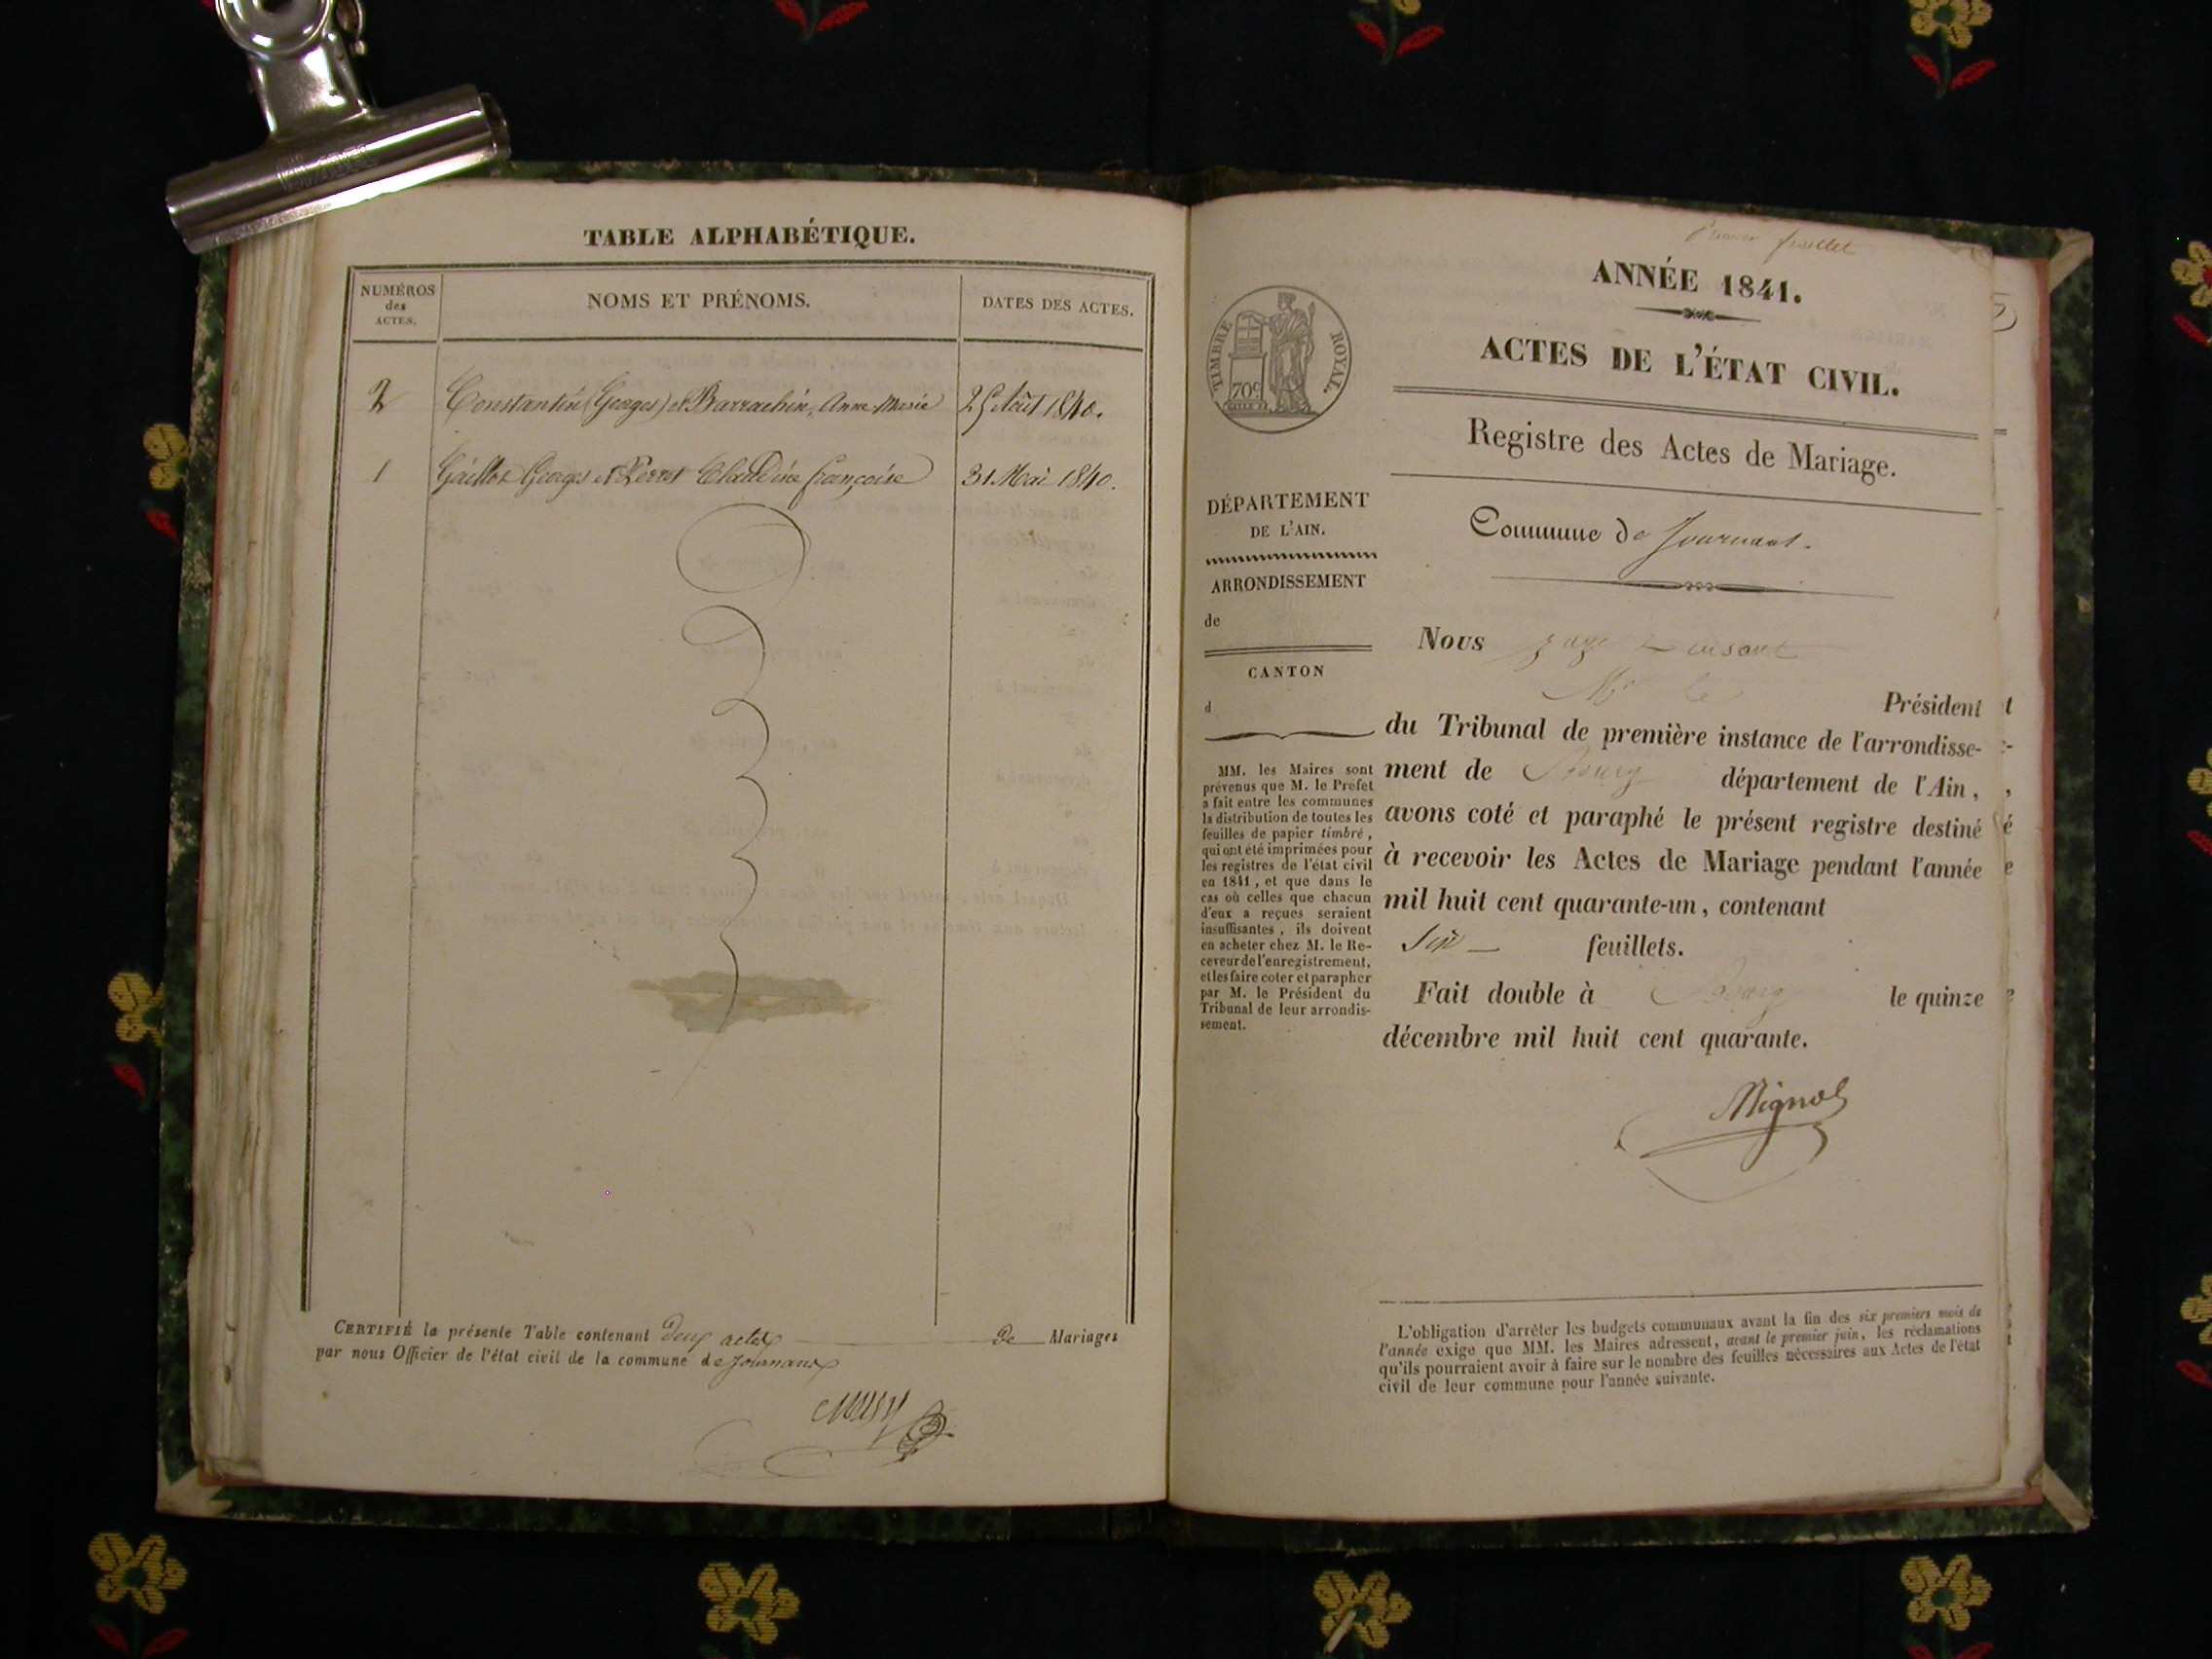 TABLE ALPHABÉTIQUE.
NUMÉROS
des
ACTES.
NOMS ET PRÉNOMS.
DATES DES ACTES.
2 Constantin (Georges) et Barrachin, Anne Marie 25 Août 1840.
1 Gaillot Georges et Perret Claudine françoise 31 Mai 1840.
CERTIFIÉ la présente Table contenant deux actes de Mariages
par nous Officier de l'état civil de la commune de Journans
feuillet
ANNÉE 1841.
ACTES DE L'ÉTAT CIVIL.
Registre des Actes de Mariage.
Commune de Journans.
TIMBRE ROYAL.
70c
DÉPARTEMENT
DE L'AIN.
ARRONDISSEMENT
de
CANTON
d
MM. les Maires sont
prévenus que M. le Préfet
a fait entre les communes
la distribution de toutes les
feuilles de papier timbré,
qui ont été imprimées pour
les registres de l'état civil
en 1841, et que dans le
cas où celles que chacun
d'eux a reçues seraient
insuffisantes, ils doivent
en acheter chez M. le Re-
ceveur de l'enregistrement,
et les faire coter et parapher
par M. le Président du
Tribunal de leur arrondis-
sement.
Nous
Président
du Tribunal de première instance de l'arrondisse-
ment de Bourg département de l'Ain,
avons coté et paraphé le présent registre destiné
à recevoir les Actes de Mariage pendant l'année
mil huit cent quarante-un, contenant
Six feuillets.
Fait double à Bourg le quinze
décembre mil huit cent quarante.
L'obligation d'arrêter les budgets communaux avant la fin des six premiers mois de
l'année exige que MM. les Maires adressent, avant le premier juin, les réclamations
qu'ils pourraient avoir à faire sur le nombre des feuilles nécessaires aux Actes de l'état
civil de leur commune pour l'année suivante.